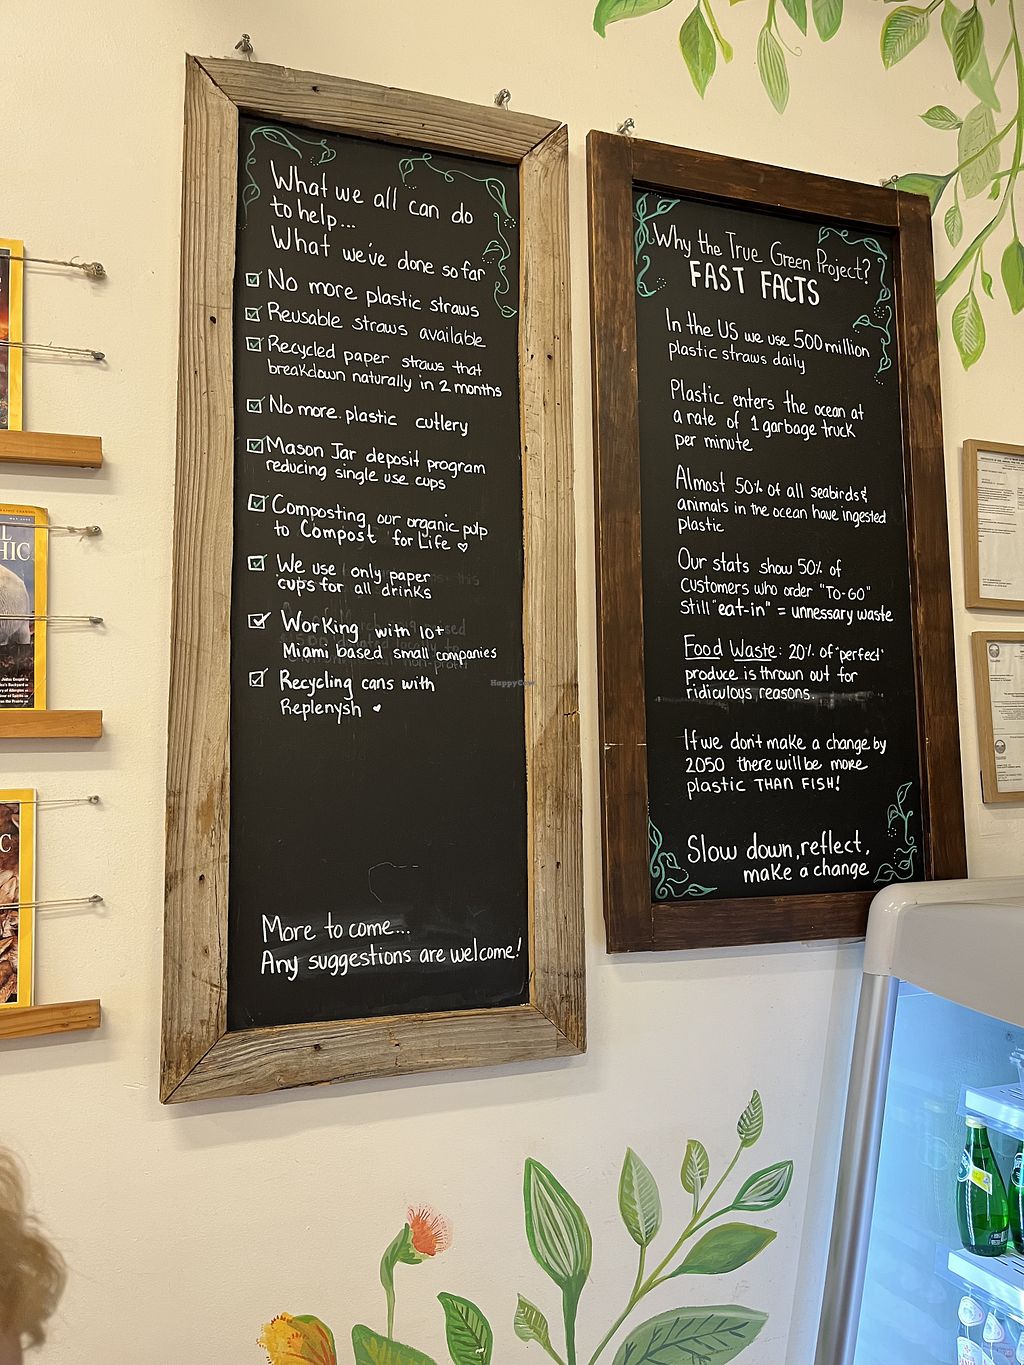 What we all can do
to help...
What we've done so far
No more plastic straws
Reusable straws available
Recycled paper straws that
breakdown naturally in 2 months
No more plastic cutlery
Mason Jar deposit program
reducing single use cups
Composting our organic pulp
to Compost for Life ♡
We use only paper
cups for all drinks
Working with 10+
Miami based small companies
Recycling cans with
Replenysh ♥
More to come...
Any suggestions are welcome!
Why the True Green Project?
FAST FACTS
In the US we use 500 million
plastic straws daily
Plastic enters the ocean at
a rate of 1 garbage truck
per minute
Almost 50% of all seabirds &
animals in the ocean have ingested
plastic
Our stats show 50% of
customers who order "TO-GO"
still "eat-in" = unnessary waste
Food Waste: 20% of "perfect"
produce is thrown out for
ridiculous reasons.
If we don't make a change by
2050 there will be more
plastic THAN FISH!
Slow down, reflect,
make a change
HappyCow
HIC
C